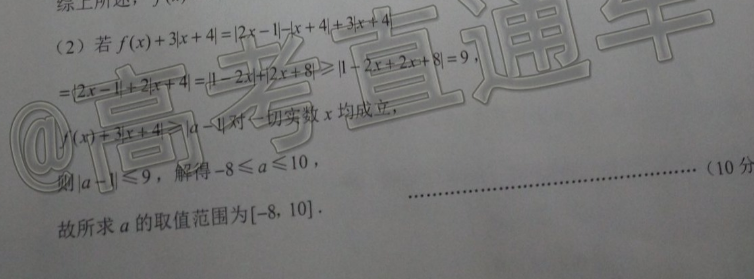 综上所述,
(2) 若 f(x)+3|x+4|=|2x-1|-|x+4|+3|x+4|
=|2x-1|+2|x+4|=|1-2x|+|2x+8|≥|1-2x+2x+8|=9,
f(x)+3|x+4|≥|a-1|对一切实数 x 均成立,
则|a-1|≤9,解得-8≤a≤10,
(10 分
故所求 a 的取值范围为[-8, 10].
@高考直通车